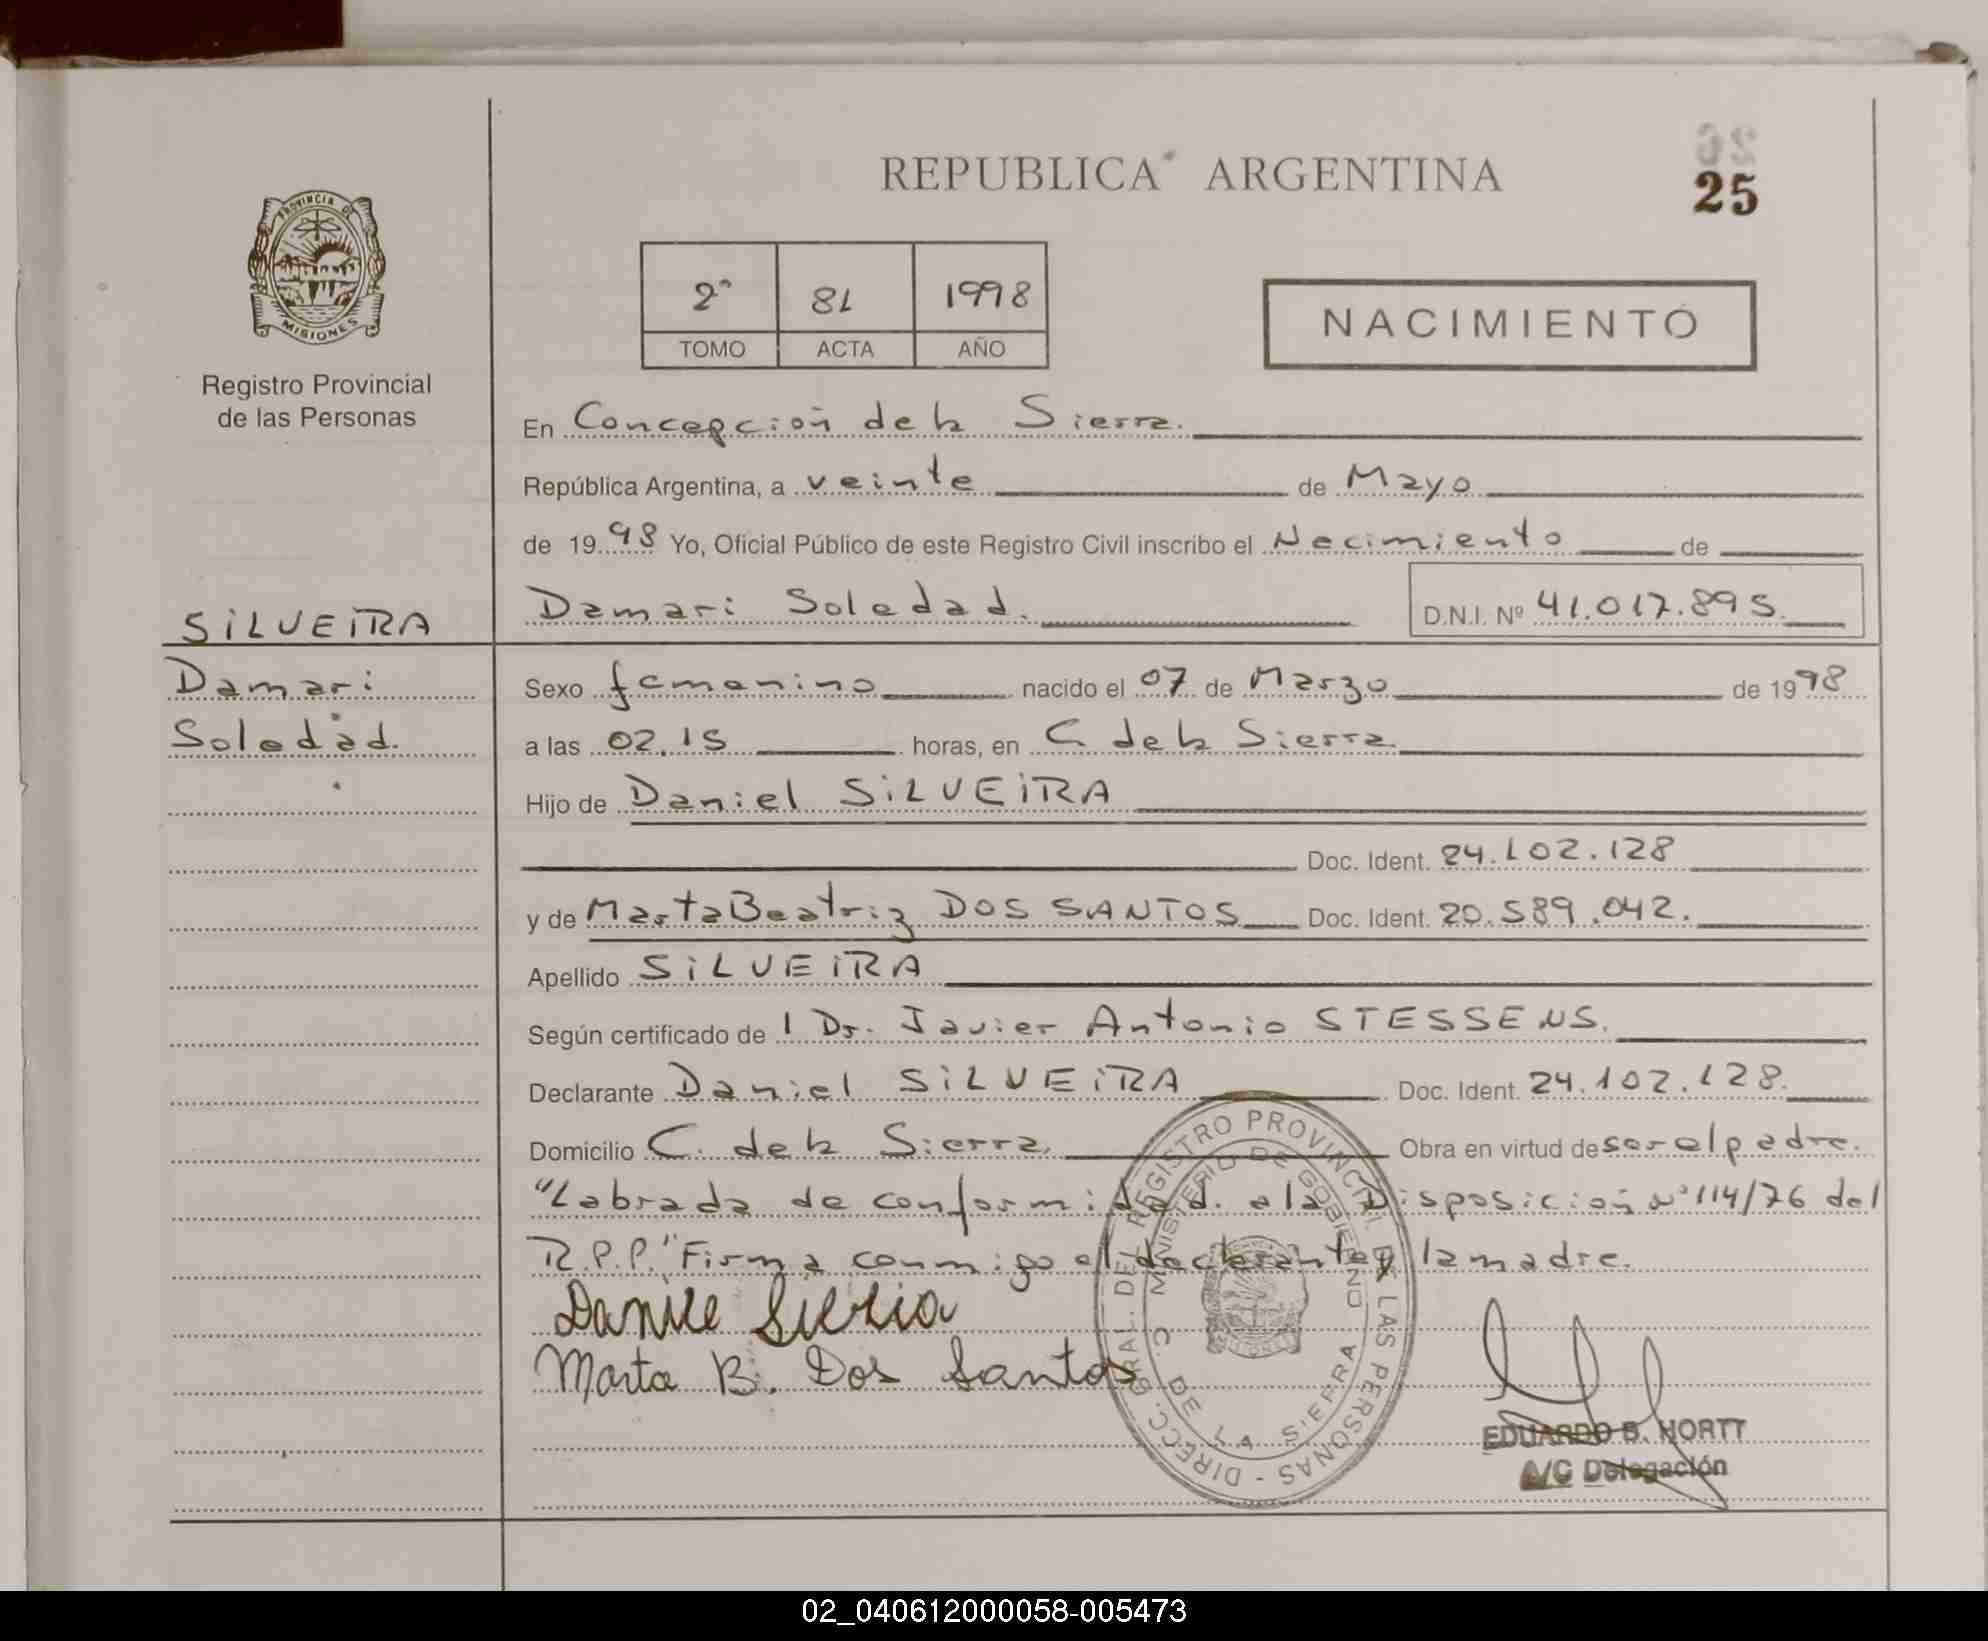 REPUBLICA ARGENTINA
26
25
PROVINCIA DE
MISIONES
Registro Provincial
de las Personas
2º 81 1998
TOMO ACTA AÑO
NACIMIENTO
En Concepción de la Sierra.
República Argentina, a veinte de Mayo
de 1998 Yo, Oficial Público de este Registro Civil inscribo el Nacimiento de
Damari Soledad. D.N.I. Nº 41.017.895.
SILVEIRA
Damari
Soledad.
Sexo femenino nacido el 07 de Marzo de 1998
a las 02.15 horas, en C. de la Sierra.
Hijo de Daniel SILVEIRA
Doc. Ident. 24.102.128
y de Marta Beatriz DOS SANTOS Doc. Ident. 20.589.042.
Apellido SILVEIRA
Según certificado de 1 Dr. Javier Antonio STESSENS.
Declarante Daniel SILVEIRA Doc. Ident. 24.102.128.
Domicilio C. de la Sierra. Obra en virtud de ser el padre.
"Labrada de conformidad. a la Disposición nº 114/76 del
R.P.P." Firma conmigo el declarante y la madre.
Marta B. Dos Santos
DIRECC. GRAL. DEL REGISTRO PROVINCIAL DE LAS PERSONAS -
MINISTERIO DE GOBIERNO
C. DE LA SIERRA
EDUARDO B. HORTT
A/C Delegación
02_040612000058-005473